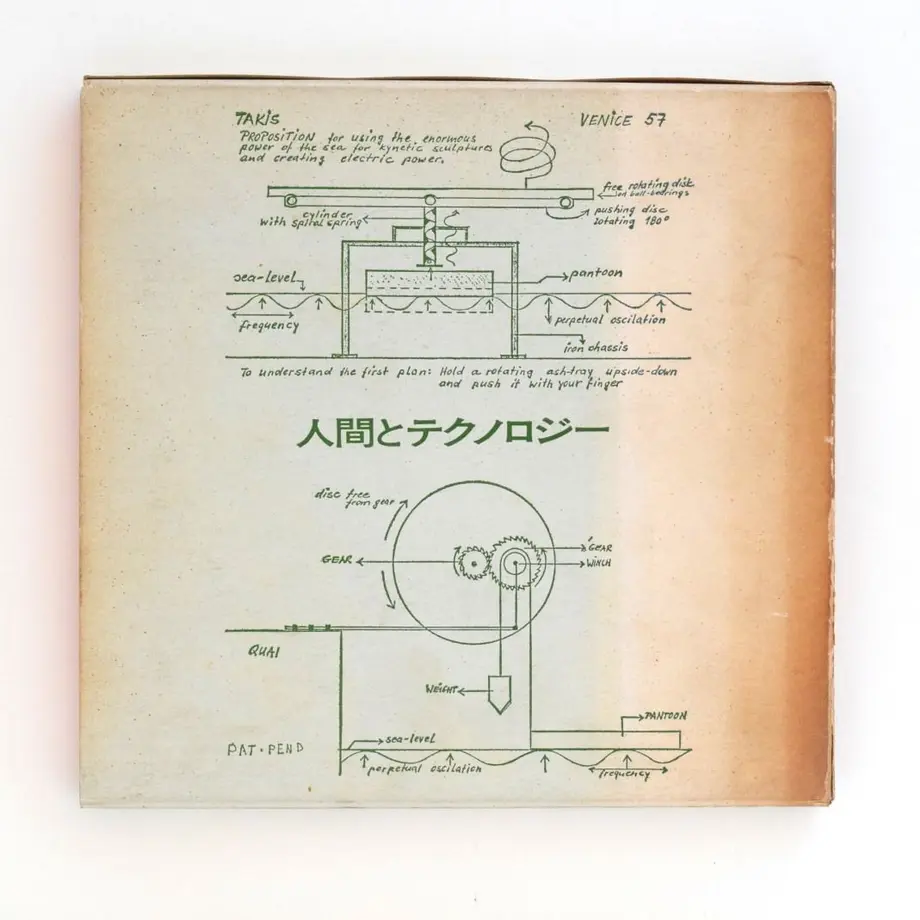 TAKIS
VENICE 57
PROPOSITION for using the enormous
power of the sea for kynetic sculptures
and creating electric power.
free rotating disk
on ball-bearings
cylinder
with spiral spring
pushing disc
rotating 180°
sea-level
pantoon
frequency
perpetual oscilation
iron chassis
To understand the first plan: Hold a rotating ash-tray upside-down
and push it with your finger
人間とテクノロジー
disc free
from gear
GEAR
GEAR
WINCH
QUAI
WEIGHT
PANTOON
sea-level
PAT·PEND
perpetual oscilation
frequency